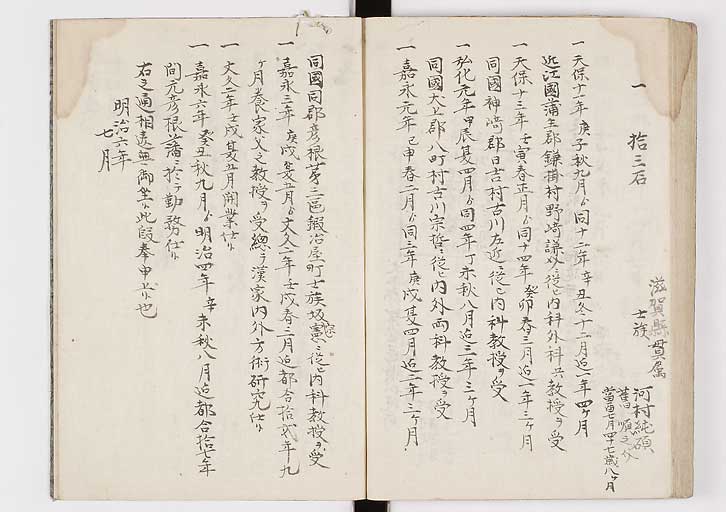 一 拾三石
滋賀縣貫属
士族
河村純碩
舊順之介
當酉七月四十七歳八ヶ月
一 天保十一年庚子秋九月ゟ同十二年辛丑冬十二月迄一年四ヶ月
近江國蒲生郡鎌掛村野﨑謙 ニ従ヒ内科外科共教授ヲ受
一 天保十三年壬寅春正月ゟ同十四年癸卯春三月迄一年三ヶ月
同國神﨑郡日吉村古川左近ニ従ヒ内科教授ヲ受
一 弘化元年甲辰夏四月ゟ同四年丁未秋八月迄三年三ヶ月
同國犬上郡八町村古川宗哲ニ従ヒ内外両科教授ヲ受
一 嘉永元年戊申春二月ゟ同三年庚戌夏四月迄二年三ヶ月
同國同郡彦根第三區鍛冶屋町士族 ニ従ヒ内科教授ヲ受
一 嘉永三年庚戌夏五月ゟ文久二年壬戌春三月迄都合拾貮年九
ヶ月養家父之教授ヲ受總テ漢家内外方術研究仕候
一 文久二年壬戌夏五月開業仕候
一 嘉永六年癸丑秋九月ゟ明治四年辛未秋八月迄都合拾七年
間元彦根藩ニ於テ勤務仕候
右之通相違無御坐候此段奉申上候也
明治六年
七月